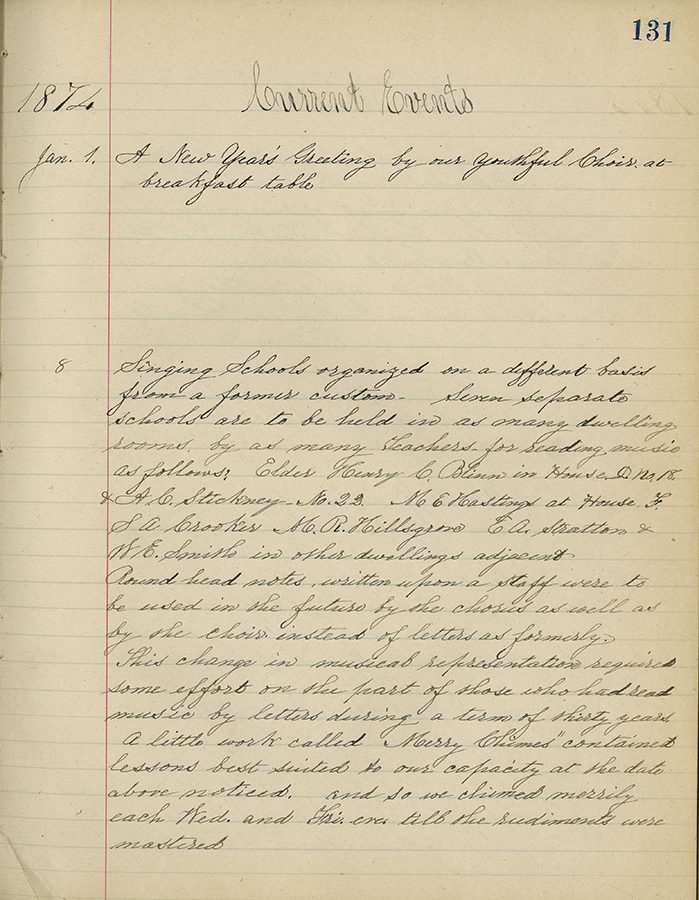 131
Current Events
1874
Jan. 1. A New Year's Greeting by our youthful Choir at
breakfast table
8 Singing Schools organized on a different basis
from a former custom - Seven separate
schools are to be held in as many dwelling
rooms, by as many teachers - for reading music
as follows; Elder Henry C. Blinn in House D No. 18.
& A. C. Stickney - No. 22 M E Hastings at House F.
S A Crooker M. R. Hillsgrove E. A. Stratton &
W E. Smith in other dwellings adjacent
Round head notes, written upon a staff were to
be used in the future by the chorus as well as
by the choir instead of letters as formerly.
This change in musical representation required
some effort on the part of those who had read
music by letters during a term of thirty years
A little work called "Merry Chimes" contained
lessons best suited to our capacity at the date
above noticed. and so we chimed merrily
each Wed. and Fri. eve. till the rudiments were
mastered